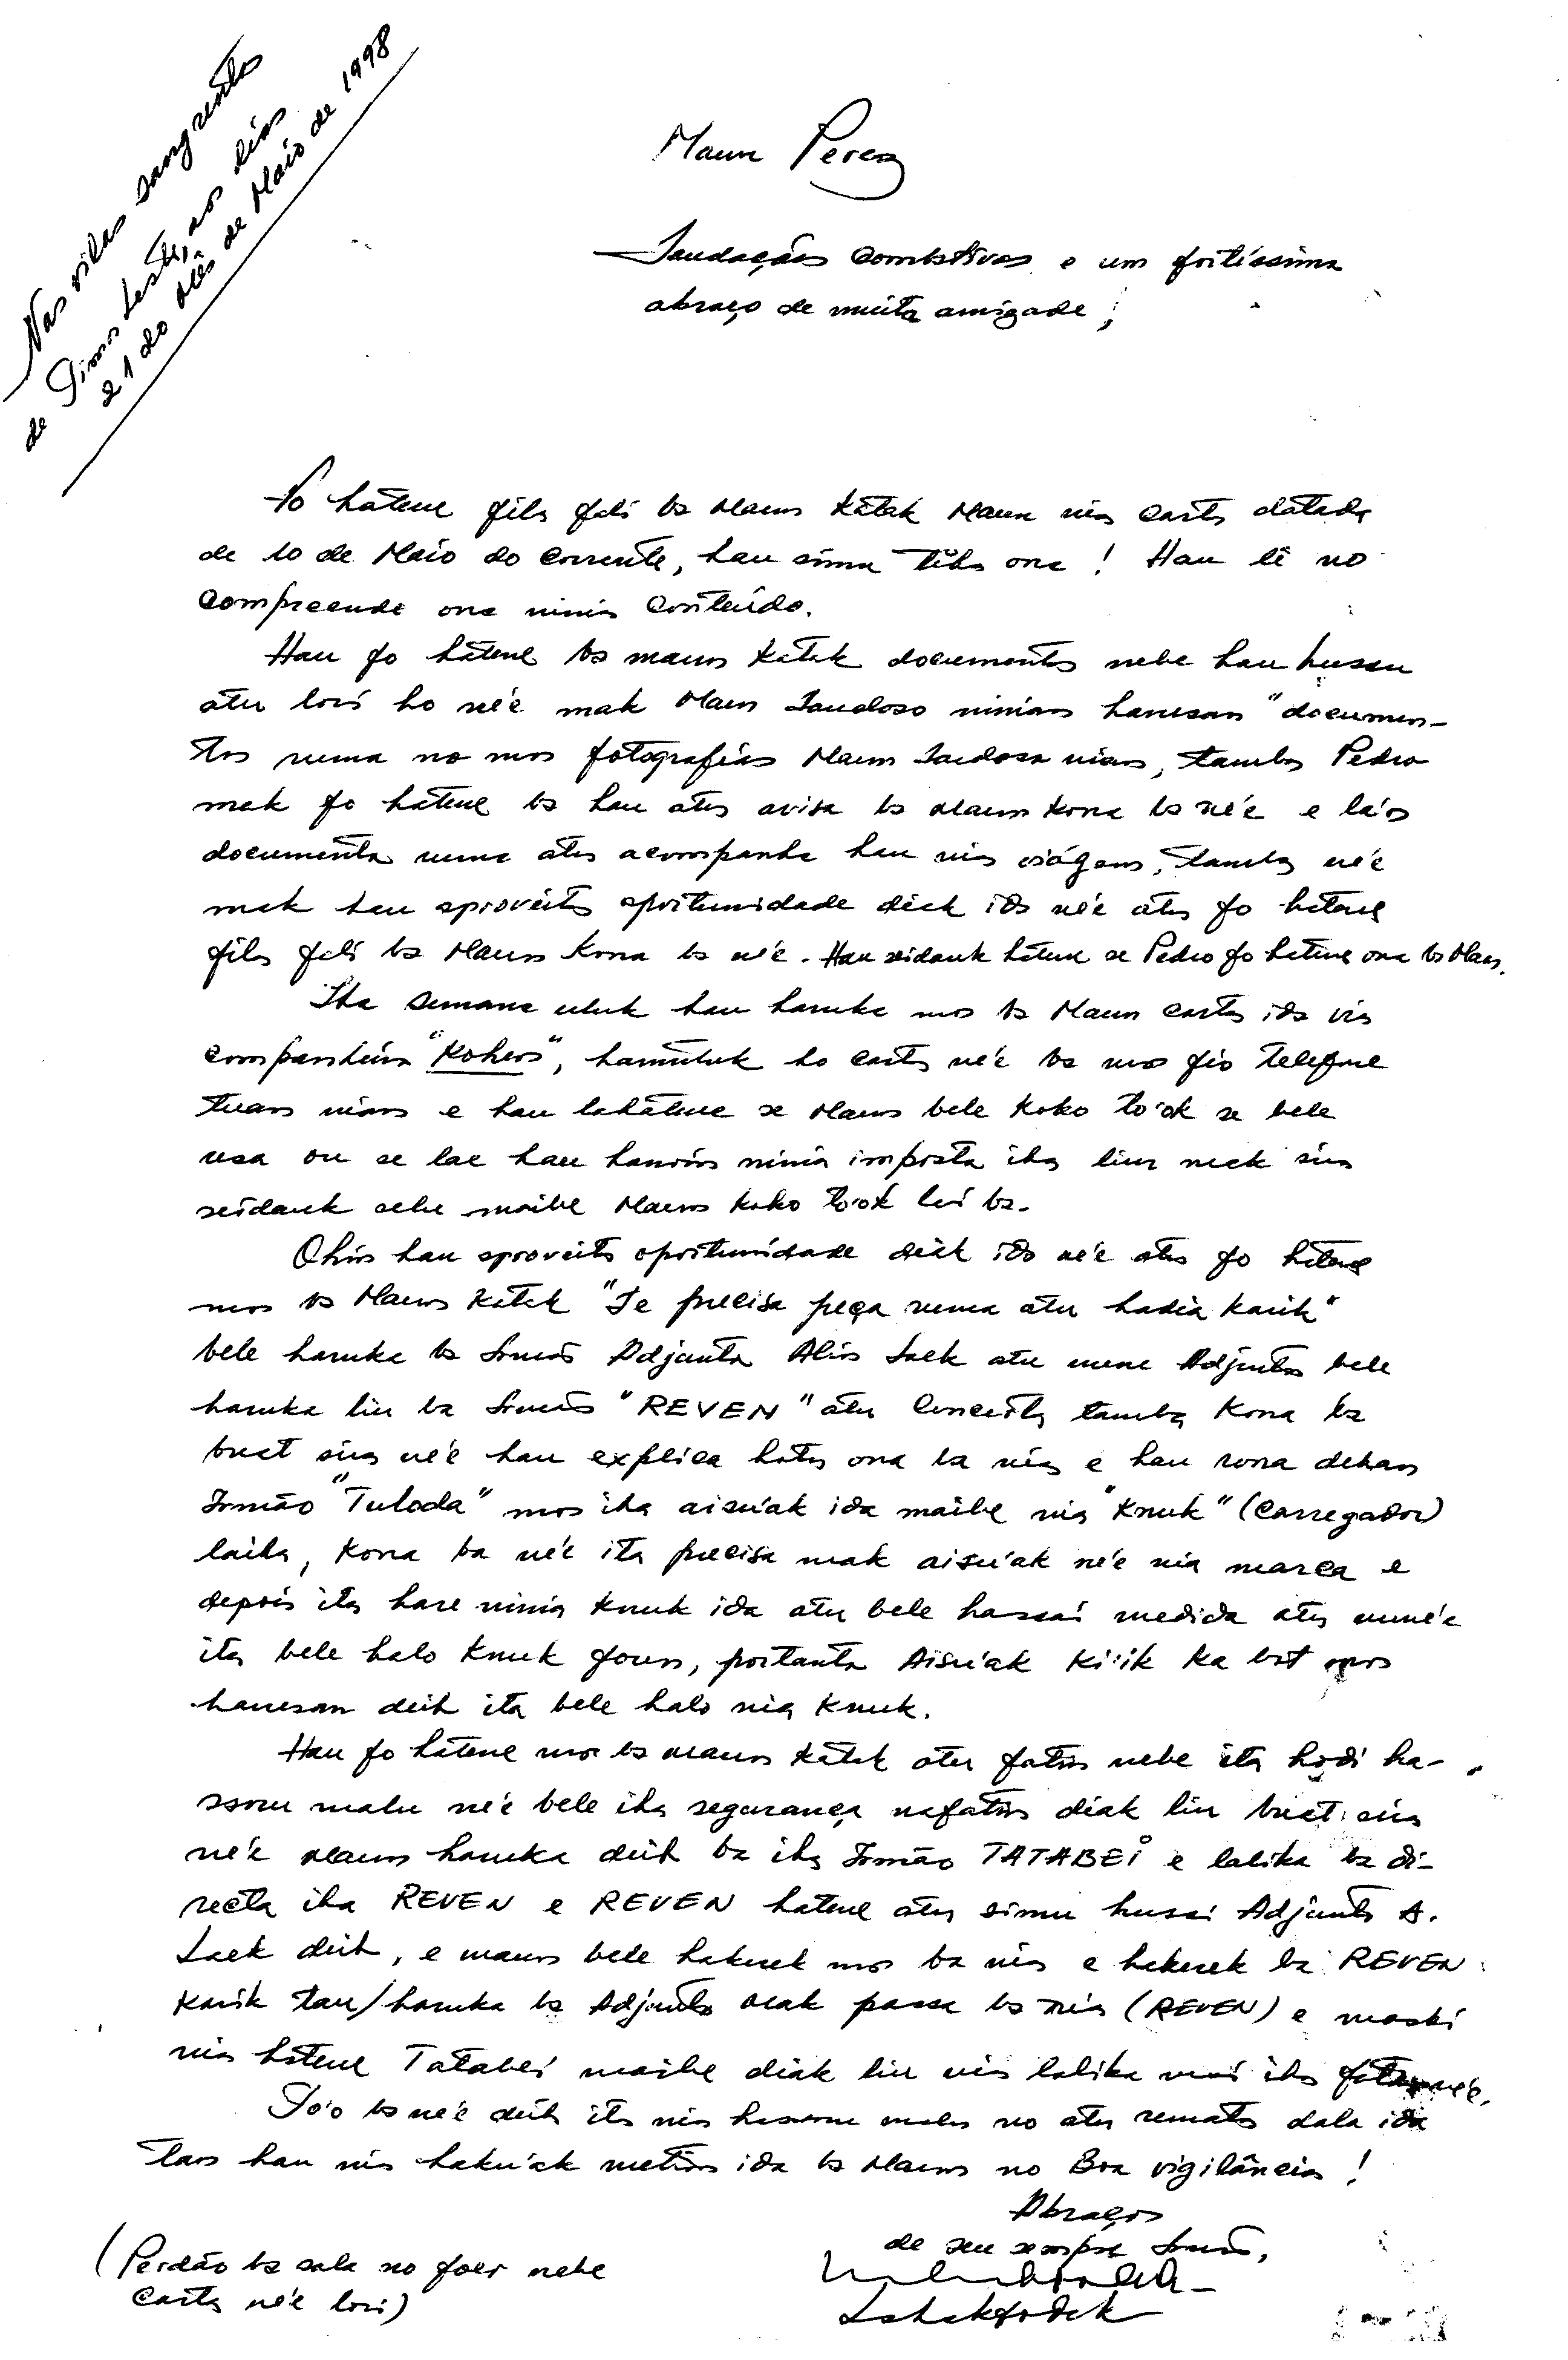 Nas vilas sangrento
de Timor Leste, aos dias
21 do mês de Maio de 1998
Maun Perez
Saudações Combativas e um fortíssimo
abraço de muita amizade;
Fo hatene fila fali ba Maun katak Maun nia carta datada
de 10 de Maio do corrente, hau simu tiha ona! Hau lê no
compreende ona ninia conteúdo.
Hau fo hatene ba maun katak documentos nebe hau husu
atu lori ho ne'e mak Maun Saudoso ninian hanesan "documen-
tos ruma no mos fotografias Maun Saudoso nian, tamba Pedro
mak fo hatene ba hau atu avisa ba Maun kona ba ne'e e la'os
documento ruma atu acompanha hau nia viagem, tamba ne'e
mak hau aproveita oportunidade diak ida ne'e atu fo hatene
fila fali ba Maun kona ba ne'e. Hau seidauk hatene se Pedro fo hatene ona ba Maun.
Iha semana uluk hau haruka mos ba Maun carta ida via
companheiro "Kohero", hamutuk ho carta ne'e ba mos fio telefone
tuan nian e hau lahatene se Maun bele koko to'ok se bele
usa ou se lae hau hanoin ninia imposta iha liur mak sira
seidauk selu maibe Maun koko to'ok lai ba.
Ohin hau aproveita oportunidade diak ida ne'e atu fo hatene
mos ba Maun katak "Se precisa peça ruma atu hadia karik"
bele haruka ba Irmão Adjunto Alin Laek atu nune Adjunto bele
haruka liu ba Irmão "REVEN" atu concerta tamba kona ba
buat sira ne'e hau explica hotu ona ba nia e hau rona dehan
Irmão "Tuloda" mos iha aisu'ak ida maibe nia "Knuk" (carregador)
laiha, kona ba ne'e ita precisa mak aisu'ak ne'e nia marca e
depois ita hare ninia knuk ida atu bele hassai medida atu nune'e
ita bele halo knuk foun, portanto Aisu'ak ki'ik ka bot mos
hanesan deit ita bele halo nia knuk.
Hau fo hatene mos ba maun katak atu fatin nebe ita hodi ha-
ssoru malu ne'e bele iha segurança nafatin diak liu buat sira
ne'e Maun haruka deit ba iha Irmão TATABEI e lalika ba di-
recta iha REVEN e REVEN hatene atu simu hussi Adjunto A.
Laek deit, e maun bele hakerek mos ba nia e hakerek ba REVEN
karik tau/haruka ba Adjunto mak passa ba nia (REVEN) e maski
nia hatene Tatabei maibe diak liu nia lalika mai iha fatin ne'e.
To'o ba ne'e deit ita nia hasoru malu no atu remata dala ida
tan hau nia haku'ak metin ida ba Maun no Boa vigilância!
Abraços
de seu sempre Irmão,
Lahakfodak
(Perdão ba sala no foer nebe
carta ne'e lori)